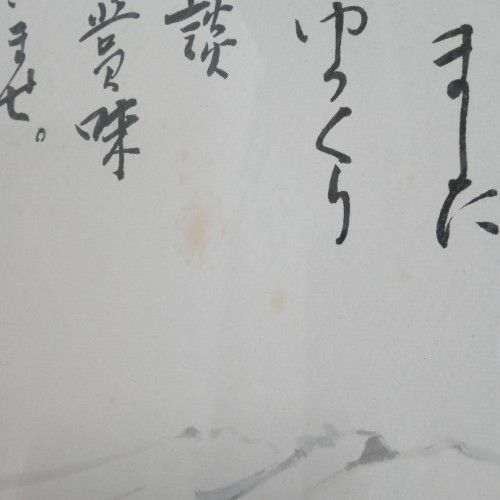 ました
ゆっくり
談
賞味
ませ。